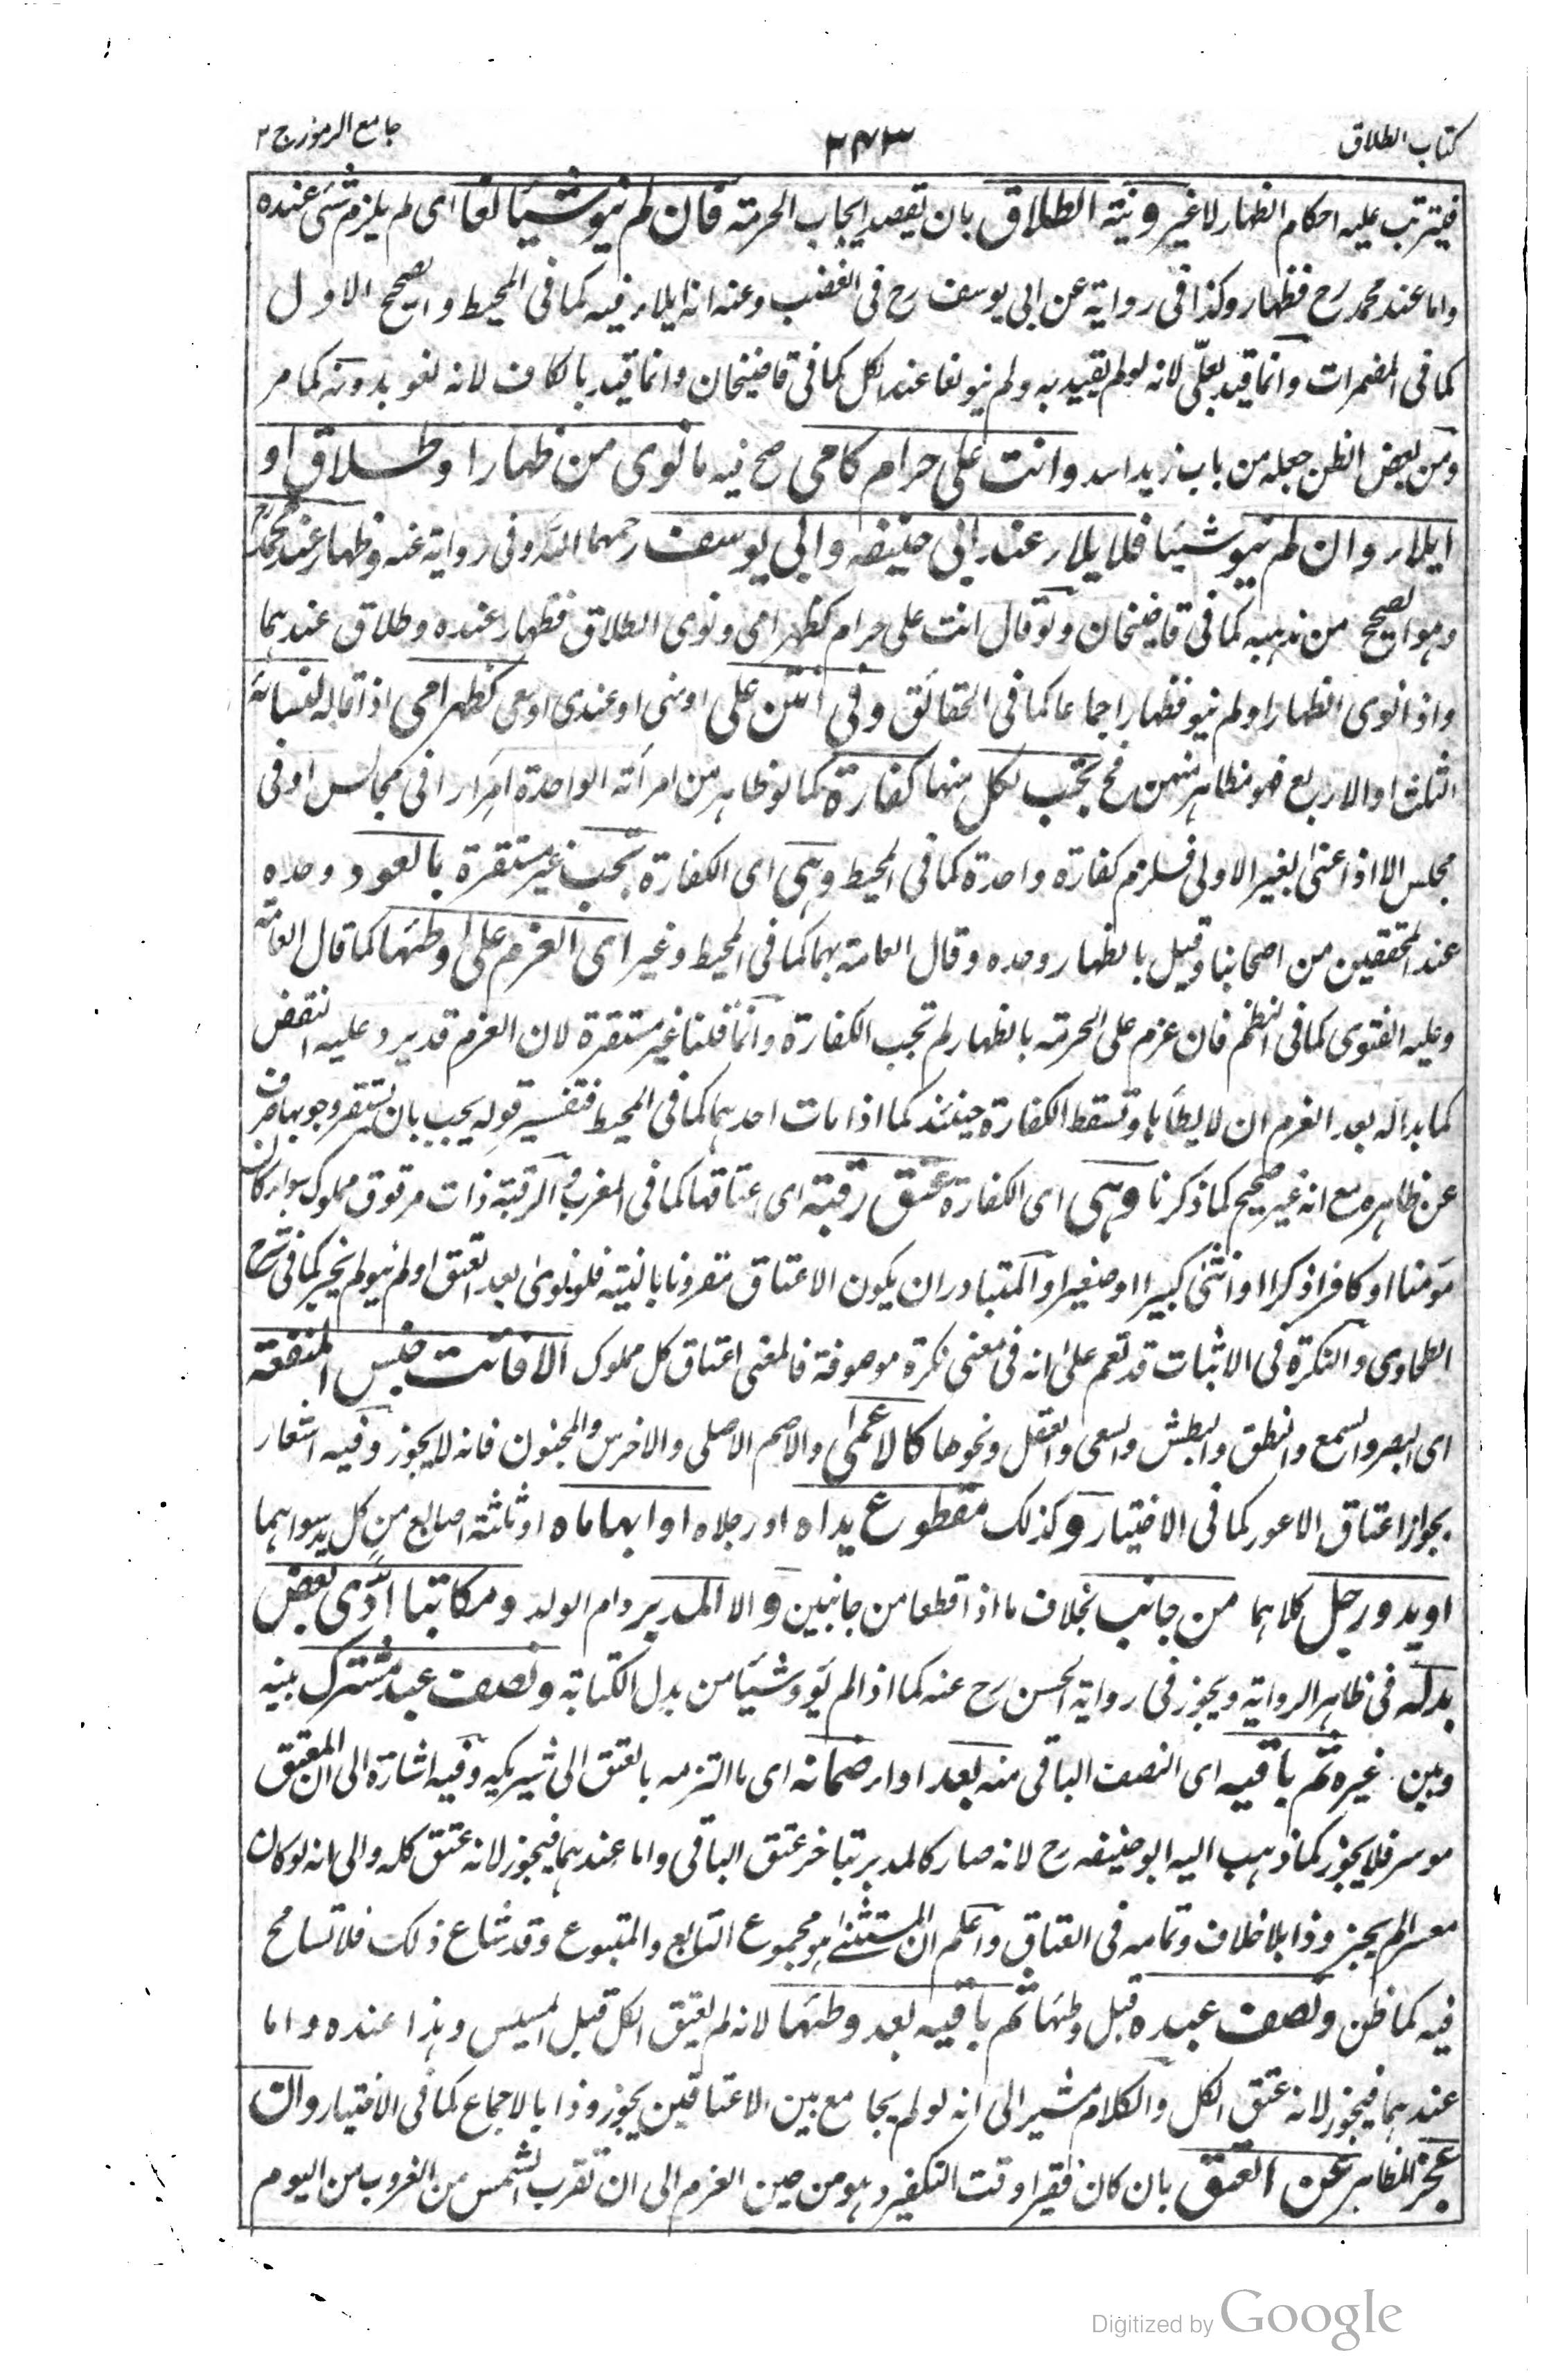 كتاب الطلاق
٢٤٣
جامع الرموز ج ٢
فيترتب عليه احكام الظهار لا غير ونية الطلاق بان يقصد ايجاب الحرمة فان لم ينو شيئا لغا اى لم يلزم شئ عنده
واما عند محمد رح فظهار وكذا فى رواية عن ابى يوسف رح فى الغضب وعنه انه ايلاء فيه كما فى المحيط والصحيح الاول
كما فى المضمرات وانما قيد بعلىّ لانه لو لم يقيد به ولم ينو لغا عند الكل كما فى قاضيخان وانما قيد بالكاف لانه لغو بدونه كما مر
ومن بعض الظن جعله من باب زيد اسد وانت على حرام كامى صح فيه ما نوى من ظهار او طلاق او
ايلاء وان لم ينو شيئا فلايلاء عند ابى حنيفه وابى يوسف رحمهما الله وفى رواية عنه وظهار عند محمد رح
وهو الصحيح من مذهبه كما فى قاضيخان ولو قال انت على حرام كظهر امى ونوى الطلاق فظهار عنده وطلاق عندهما
واذا نوى الظهار او لم ينو فظهار اجماعا كما فى الحقائق وفى انتن على او منى او عندى او معى كظهر امى اذا قاله لنسائه
الثلث او الاربع فهو مظاهر منهن فح تجب لكل منها كفارة كما لو ظاهر من امرأته الواحدة مرارا فى مجالس او فى
مجلس الا اذا عنى بغير الاولى فيلزم كفارة واحدة كما فى المحيط وهى اى الكفارة تجب غير مستقرة بالعود وحده
عند المحققين من اصحابنا وقيل بالظهار وحده وقال العامة بهما كما فى المحيط وغيره اى العزم على وطئها كما قال العامة
وعليه الفتوى كما فى النظم فان عزم على الحرمة بالظهار لم تجب الكفارة وانما قلنا غير مستقرة لان العزم قد يرد عليه النقض
كما بدا له بعد العزم ان لا يطأها وتسقط الكفارة حينئذ كما اذا مات احدهما كما فى المحيط فتفسير قوله يجب بان يستقر وجوبها صرف
عن ظاهره مع انه غير صحيح كما ذكرنا وهى اى الكفارة عتق رقبة اى اعتاقها كما فى المغرب والرقبة ذات مرقوق مملوك سواء كان
مؤمنا او كافرا ذكرا او انثى كبيرا او صغيرا والمتبادر ان يكون الاعتاق مقرونا بالنية فلو نوى بعد العتق او لم ينو لم يجز كما فى شرح
الطحاوى والنكرة فى الاثبات قد تعم على انه فى معنى نكرة موصوفة فالمعنى اعتاق كل مملوك الا فائت جنس المنفعة
اى البصر والسمع والنطق والبطش والسعى والعقل ونحوها كالاعمى والاصم الاصلى والاخرس والمجنون فانه لا يجوز وفيه اشعار
بجواز اعتاق الاعور كما فى الاختيار وكذلك مقطوع يداه او رجلاه او ابهاماه او ثلثة اصابع من كل يد سواهما
او يد ورجل كلاهما من جانب بخلاف ما اذا قطعا من جانبين والا المدبر وام الولد ومكاتبا ادّى بعض
بدله فى ظاهر الرواية ويجوز فى رواية الحسن رح عنه كما اذا لم يؤد شيئا من بدل الكتابة ونصف عبد مشترك بينه
وبين غيره ثم باقيه اى النصف الباقى منه بعد اداء ضمانه اى ما التزمه بالعتق الى شريكه وفيه اشارة الى ان المعتق
موسر فلا يجوز كما ذهب اليه ابو حنيفه رح لانه صار كالمدبر بتاخر عتق الباقى واما عندهما فيجوز لانه عتق كله والى انه لو كان
معسرا لم يجز وذا بلا خلاف وتمامه فى العتاق واعلم ان المستثنى هو مجموع التابع والمتبوع وقد شاع ذلك فلا تسامح
فيه كما ظن ونصف عبده قبل وطئها ثم باقيه بعد وطئها لانه لم يعتق الكل قبل المسيس وهذا عنده واما
عندهما فيجوز لانه عتق الكل والكلام مشير الى انه لو لم يجامع بين الاعتاقين يجوز وذا بالاجماع كما فى الاختيار وان
عجز المظاهر عن العتق بان كان فقيرا وقت التكفير وهو من حين العزم الى ان تقرب الشمس من الغروب من اليوم
Digitized by Google